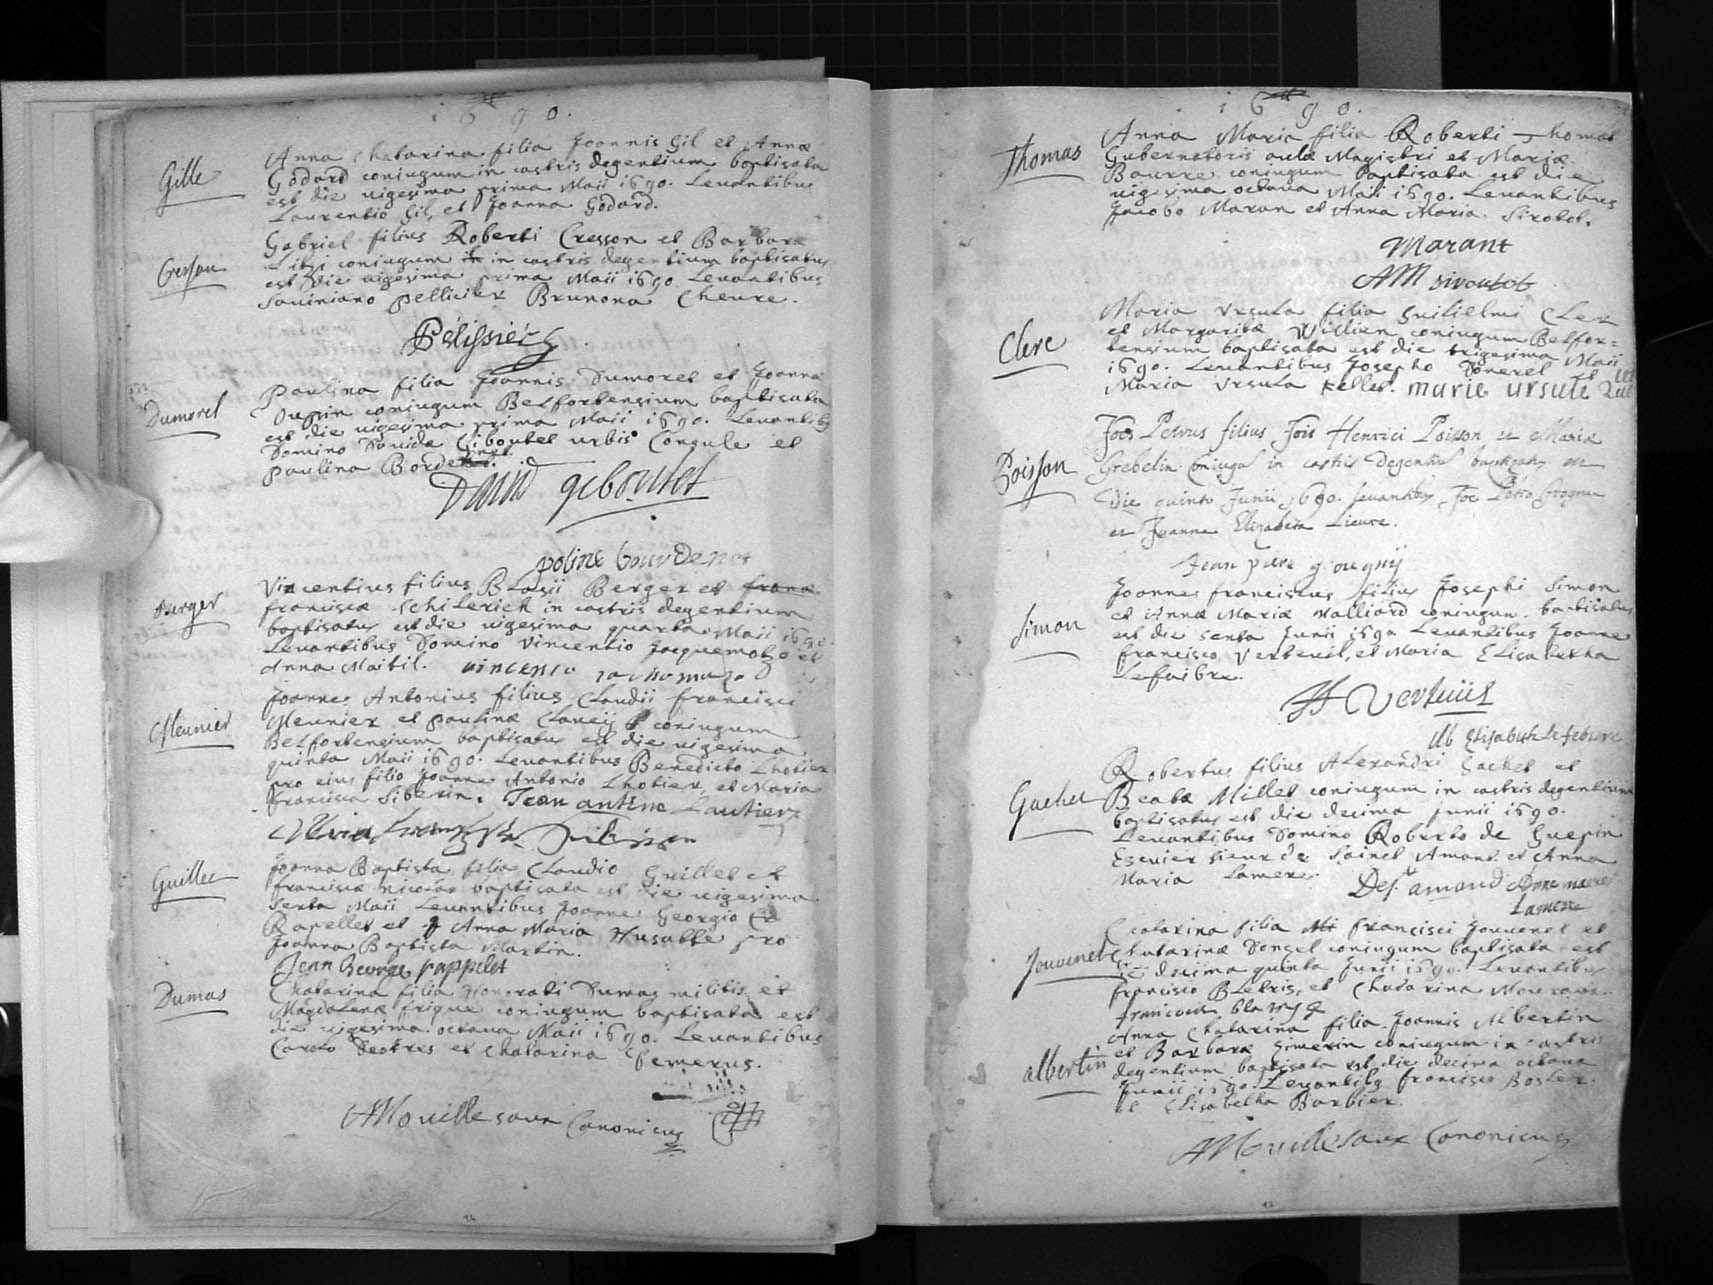 1690.
Gille
Anna Chatarina filia Joannis Gil et Annæ
Godard coniugum in castris degentium baptisata
est die uigesima prima Maii 1690. Leuantibus
Laurentio Gil, et Joanna Godard.
Cresson
Gabriel filius Roberti Cresson et Barbaræ
coniugum in castris degentium baptisatus
est die uigesima prima Maii 1690 Leuantibus
Sauiniano pellicier Brunona Cheure.
Pélissier
Dumorel
Paulina filia Joannis Dumorel et Joanna
Dupin coniugum Belfortensium baptisata
est die uigesima prima Maii 1690. Leuantibus
Domino Dauide Giboutet urbis Consule et
paulina Bordenet.
David geboutet
poline bourdenet
Berger
Vincentius filius Blasii Berger et
franciscæ Schilerick in castris degentium
baptisatus est die uigesima quarta Maii 1690.
Leuantibus Domino Vincentio Jacquemotzo et
Anna Maitil. vincenso
Meunier
Joannes Antonius filius Claudii francisci
Meunier et paulinæ Clauey coniugum
Belfortensium baptisatus est die uigesima
quinta Maii 1690. Leuantibus Benedicto Lhotier
pro eius filio Joanne Antonio Lhotier, et Maria
francisca Siberin. Jean antine Lautier
Guillet
Joanna Baptista filia Claudio Guillet et
franciscæ Nicolas baptisata est die uigesima
sexta Maii Leuantibus Joanne Georgio
Rapellet et Anna Maria Husable pro
Joanna Baptista Martin.
Jean George rappelet
Dumas
Chatarina filia Honorati Dumas militis et
Magdalenæ frique coniugum baptisata est
die uigesima octaua Maii 1690. Leuantibus
Carolo Deotres et Chatarina Femerus.
AMouillesaux Canonicus
1690.
Thomas
Anna Maria filia Roberti Thomas
Gubernatoris aulæ Magistri et Mariæ
Bourre coniugum baptisata est die
uigesima octaua Maii 1690. Leuantibus
Jacobo Maran et Anna Maria Sirotot.
Marant
AM siroutot
Clerc
Maria Vrsula filia Guilielmi Cler
et Margaritæ Willien coniugum Belfor=
tensium baptisata est die trigesima Maii
1690. Leuantibus Josepho Donerel et
Maria Vrsula Keller. marie ursule
Poisson
Joes Petrus filius Jois Henrici Poisson et Mariæ
Grebelin Coniugu in castris Degentiu baptizatus est
Die quinto Junii 1690. Leuantibus Joe Petro Grogne
et Joanna Elizabeta Lieure.
Jean piere grougnij
Simon
Joannes franciscus filius Josephi Simon
et Annæ Mariæ Malliard coniugum baptisatus
est die sexta Junii 1690 Leuantibus Joanne
francisco Verteuil, et Maria Elisabetha
Lefaibre.
Verteüil
M Elisabeth Lefebure
Gachet
Robertus filius Alexandri Gachet et
Beatæ Millet coniugum in castris degentium
baptisatus est die decima Junii 1690.
Leuantibus Domino Roberto de Guepin
Escuier Sieur de Sainct Amant et Anna
Maria Lamere. Des.t amand Anne marie
Lamere
Jouuenet
Chatarina filia francisci Jouuenet et
Chatarinæ Donzel coniugum baptisata est
die decima quinta Junii 1690. Leuantibus
francisco Bletris, et Chatarina
francois
albertin
Anna Chatarina filia Joannis Albertin
et Barbaræ Simerin coniugum in castris
degentium baptisata est die decima octaua
Junii 1690. Leuantibus francisco Bosler
et Elisabetha Barbier.
AMouillesaux Canonicus